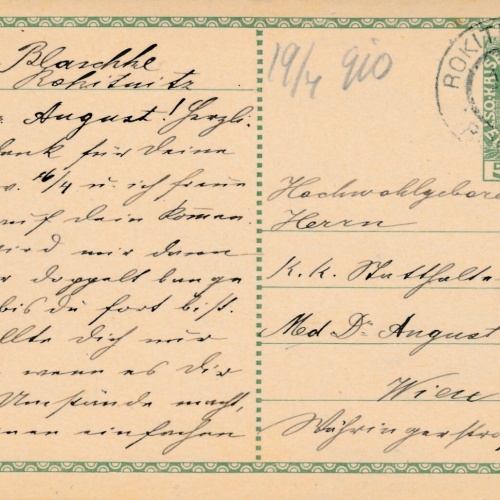 Blaschke
Rokitnitz
August! Herzli
dank für deine
v. 16/4 u. ich freue
auf dein Kommen.
wird mir dann
doppelt bange
bis du fort bist.
dich nur
wenn es dir
Umstände macht,
einen einfachen
19/4 910
ROKIT
Hochwohlgeboren
Herrn
K. K. Statthalte
Med Dr August
Wien
Währingerstra